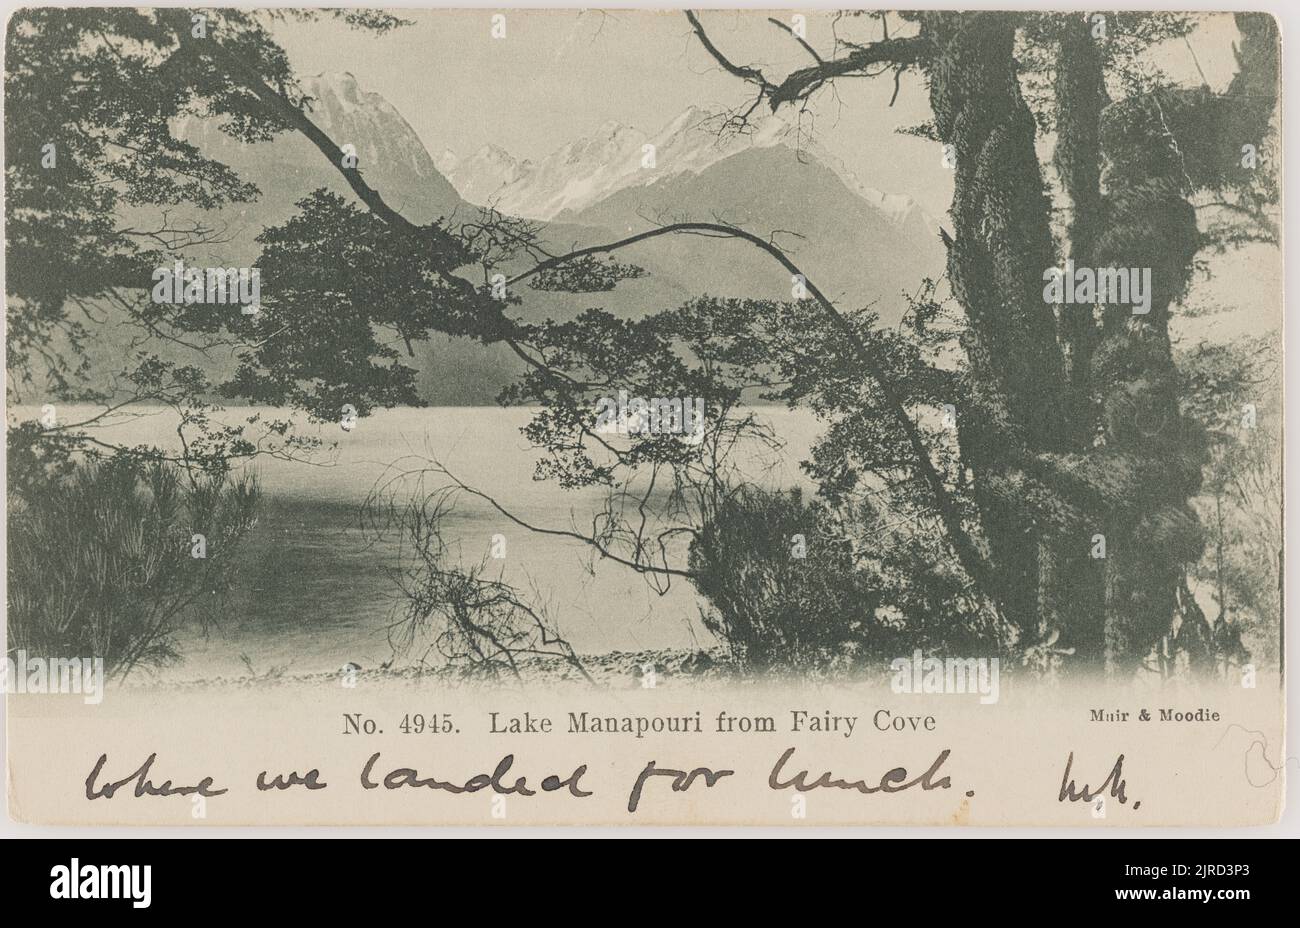 No. 4945. Lake Manapouri from Fairy Cove
Muir & Moodie
Where we landed for lunch.
alamy
alamy
Image ID: 2JRD3P3
www.alamy.com